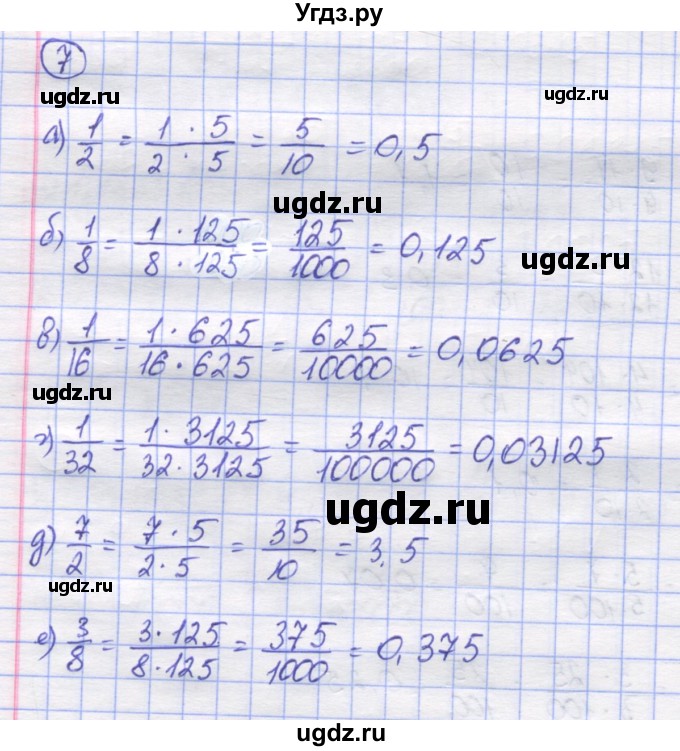 Угдз.ру
7
ugdz.ru
ugdz.ru
а) 1/2 = 1 · 5 / 2 · 5 = 5/10 = 0,5
ugdz.ru
б) 1/8 = 1 · 125 / 8 · 125 = 125/1000 = 0,125
ugdz.ru
в) 1/16 = 1 · 625 / 16 · 625 = 625/10000 = 0,0625
ugdz.ru
г) 1/32 = 1 · 3125 / 32 · 3125 = 3125/100000 = 0,03125
ugdz.ru
д) 7/2 = 7 · 5 / 2 · 5 = 35/10 = 3,5
ugdz.ru
е) 3/8 = 3 · 125 / 8 · 125 = 375/1000 = 0,375
ugdz.ru
ugdz.ru